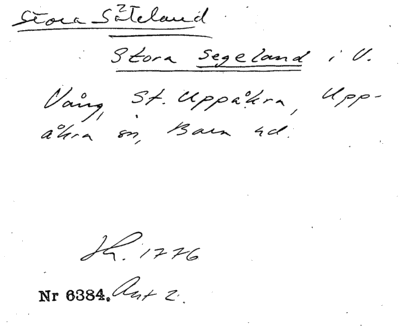 Stora Säteland
Stora Segeland i V.
Vång, St. Uppåkra, Upp-
åkra sn, Bara hd.
Sk. 1776
Nr 6384. Akt 2.